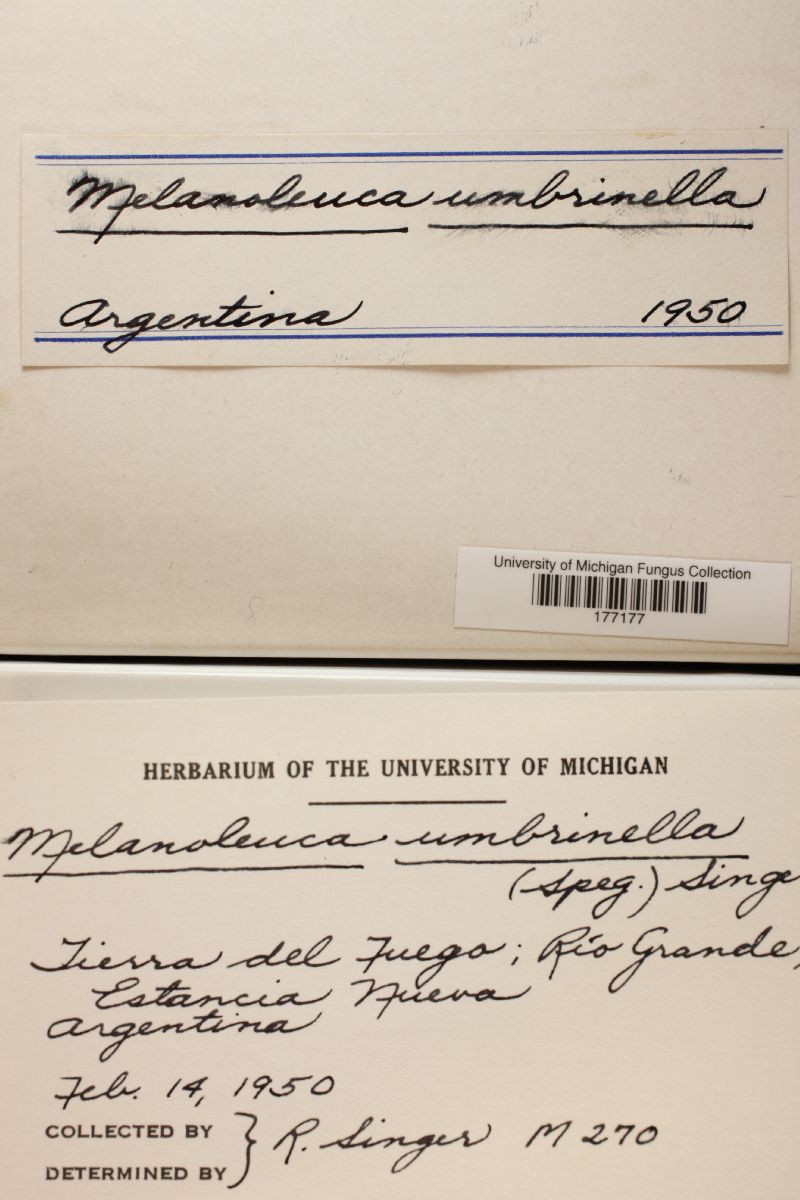 Melanoleuca umbrinella
Argentina 1950
University of Michigan Fungus Collection
177177
HERBARIUM OF THE UNIVERSITY OF MICHIGAN
Melanoleuca umbrinella
(Speg.) Singe
Tierra del Fuego; Río Grande,
Estancia Nueva
Argentina
Feb. 14, 1950
COLLECTED BY
DETERMINED BY } R. Singer M 270